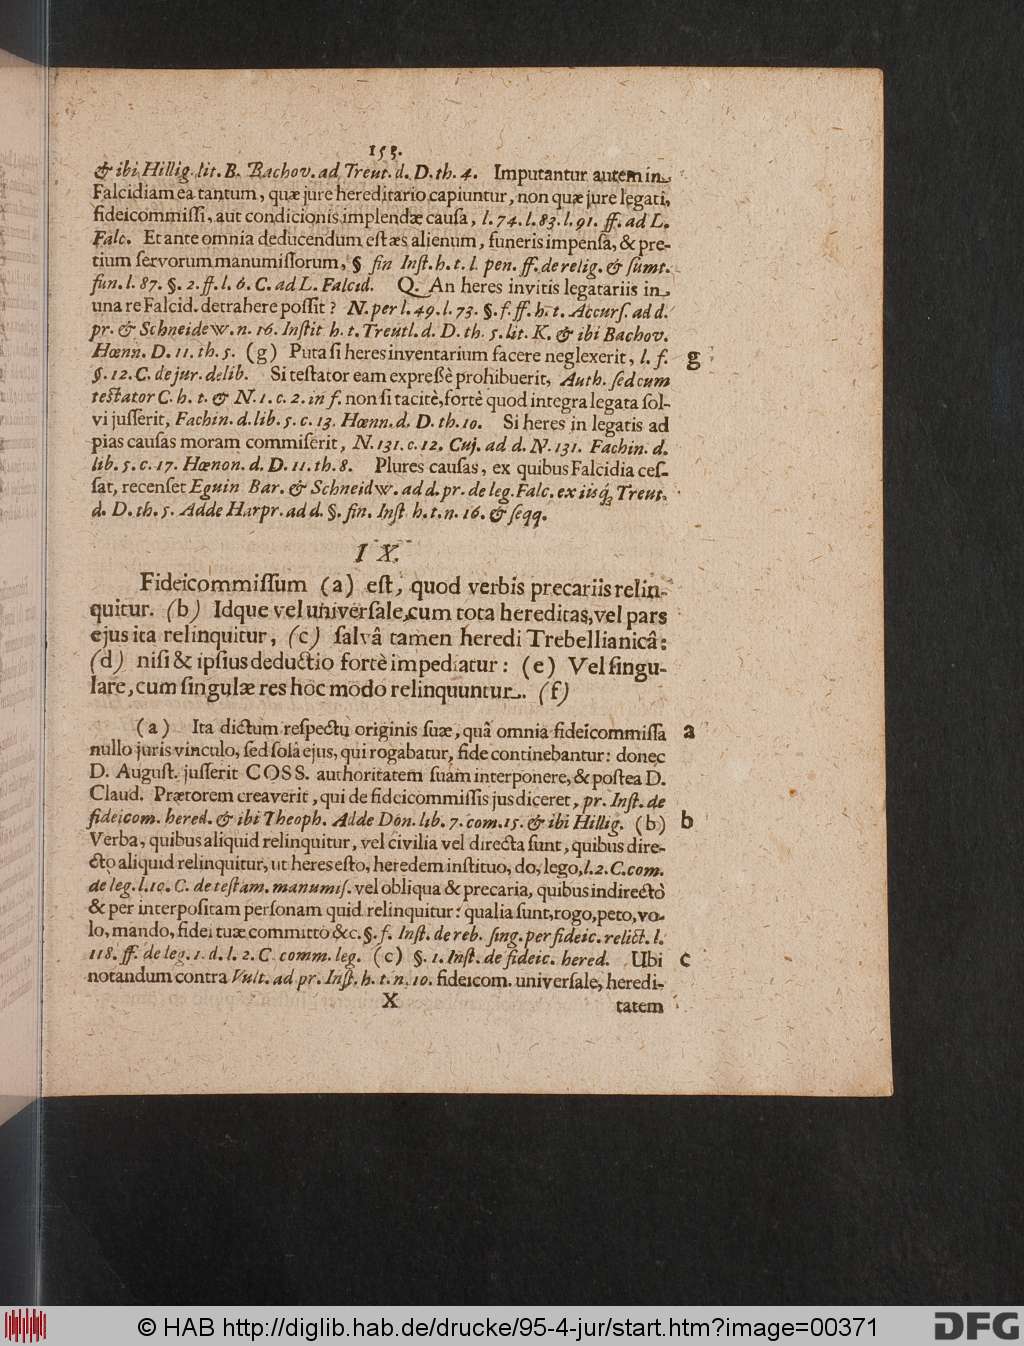 153.
& ibi Hillig. lit. B. Bachov. ad Treut. d. D. th. 4. Imputantur autem in
Falcidiam ea tantum, quæ jure hereditario capiuntur, non quæ jure legati,
fideicommissi, aut condicionis implendæ causa, l. 74. l. 83. l. 91. ff. ad L.
Falc. Et ante omnia deducendum est æs alienum, funeris impensa, & pre-
tium servorum manumissorum, § fin Inst. h. t. l. pen. ff. de relig. & sumt.
fun. l. 87. §. 2. ff. l. 6. C. ad L. Falcid. Q. An heres invitis legatariis in
una re Falcid. detrahere possit? N. per l. 49. l. 73. §. f. ff. h. t. Accurs. ad d.
pr. & Schneidew. n. 16. Instit h. t. Treutl. d. D. th. 5. lit. K. & ibi Bachov.
Hœnn. D. 11. th. 5. (g) Puta si heres inventarium facere neglexerit, l. f. g
§. 12. C. de jur. delib. Si testator eam expressè prohibuerit, Auth. sed cum
testator C. h. t. & N. 1. c. 2. in f. non si tacitè, fortè quod integra legata sol-
vi jusserit, Fachin. d. lib. 5. c. 13. Hœnn. d. D. th. 10. Si heres in legatis ad
pias causas moram commiserit, N. 131. c. 12. Cuj. ad d. N. 131. Fachin. d.
lib. 5. c. 17. Hœnon. d. D. 11. th. 8. Plures causas, ex quibus Falcidia ces-
sat, recenset Eguin Bar. & Schneidw. ad d. pr. de leg. Falc. ex iisq; Treut.
d. D. th. 5. Adde Harpr. ad d. §. fin. Inst h. t. n. 16. & seqq.
I X.
Fideicommissum (a) est, quod verbis precariis relin-
quitur. (b) Idque vel universale, cum tota hereditas, vel pars
ejus ita relinquitur, (c) salvâ tamen heredi Trebellianicâ:
(d) nisi & ipsius deductio fortè impediatur: (e) Vel singu-
lare, cum singulæ res hoc modo relinquuntur. (f)
(a) Ita dictum respectu originis suæ, quâ omnia fideicommissa a
nullo juris vinculo, sed solâ ejus, qui rogabatur, fide continebantur: donec
D. August. jusserit COSS. authoritatem suam interponere, & postea D.
Claud. Prætorem creaverit, qui de fideicommissis jus diceret, pr. Inst. de
fideicom. hered. & ibi Theoph. Adde Don. lib. 7. com. 15. & ibi Hillig. (b) b
Verba, quibus aliquid relinquitur, vel civilia vel directa sunt, quibus dire-
cto aliquid relinquitur, ut heres esto, heredem instituo, do, lego, l. 2. C. com.
de leg. l. 10. C. de testam. manumis. vel obliqua & precaria, quibus indirectò
& per interpositam personam quid relinquitur: qualia sunt, rogo, peto, vo-
lo, mando, fidei tuæ committo &c. §. f. Inst. de reb. sing. per fideic. relict. l.
118. ff. de leg. 1. d. l. 2. C. comm. leg. (c) §. 1. Inst. de fideic. hered. Ubi c
notandum contra Vult. ad pr. Inst. h. t. n. 10. fideicom. universale, heredi-
X tatem
© HAB http://diglib.hab.de/drucke/95-4-jur/start.htm?image=00371
DFG